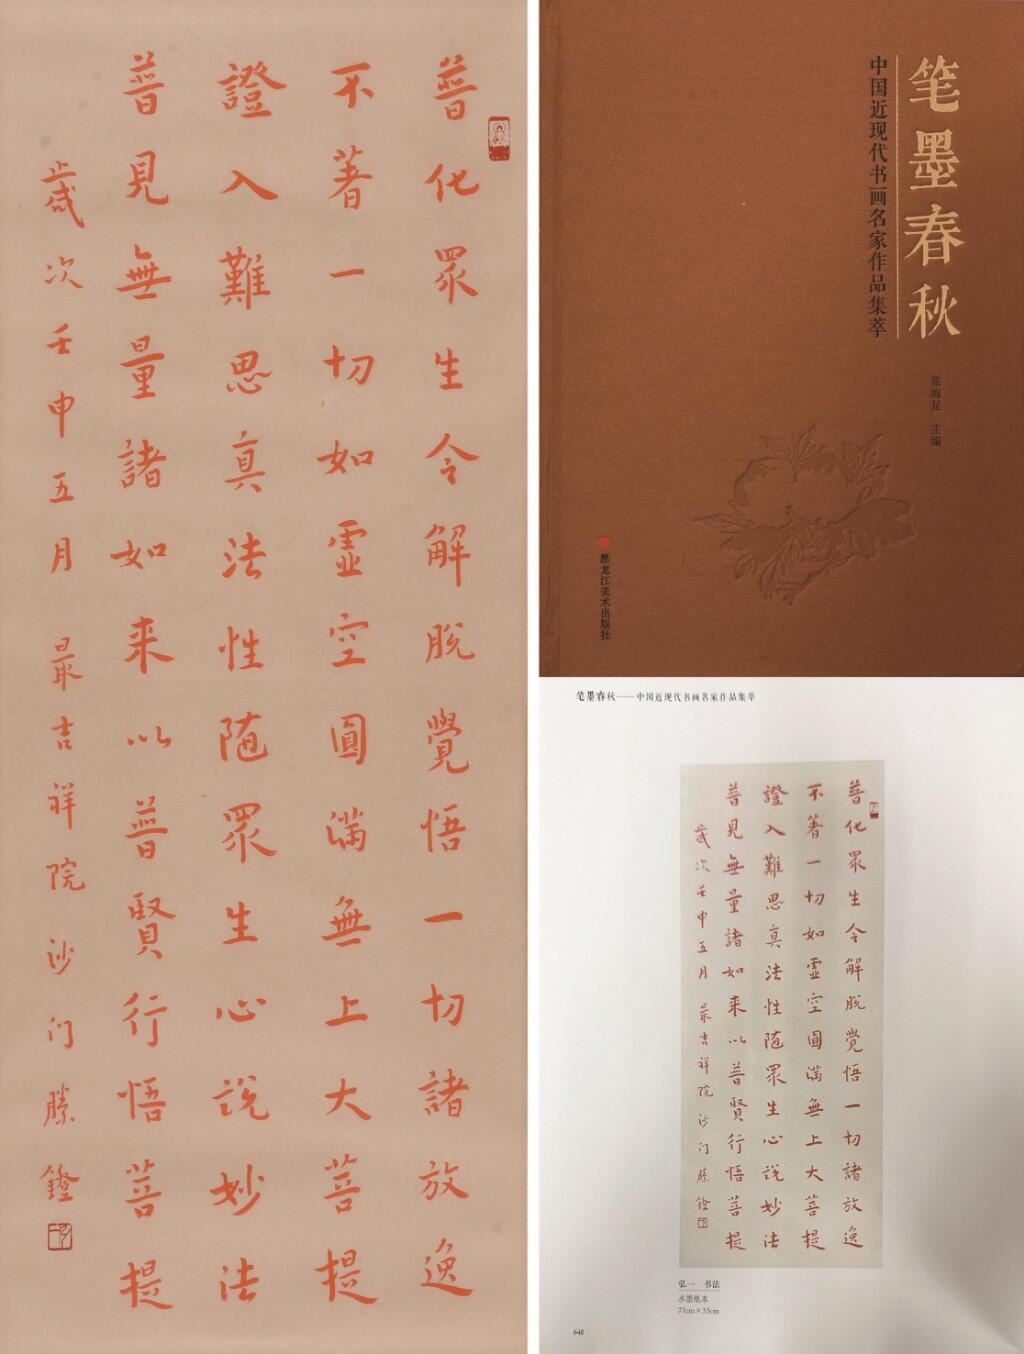 普化眾生令解脫覺悟一切諸放逸
不著一切如虛空圓滿無上大菩提
證入難思真法性隨眾生心說妙法
普見無量諸如来以普賢行悟菩提
歲次壬申五月 最吉祥院沙门勝鐙
笔墨春秋
中国近现代书画名家作品集萃
张海星 主编
黑龙江美术出版社
笔墨春秋——中国近现代书画名家作品集萃
普化眾生令解脫覺悟一切諸放逸
不著一切如虛空圓滿無上大菩提
證入難思真法性隨眾生心說妙法
普見無量諸如来以普賢行悟菩提
歲次壬申五月 最吉祥院沙门勝鐙
弘一 书法
水墨纸本
77cm×33cm
648